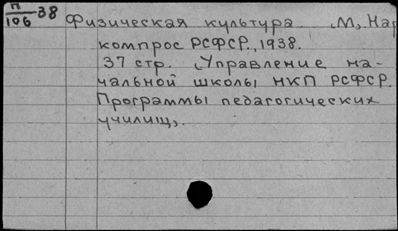 П
106 38
Физическая культура. М., Нар
компрос РСФСР, 1938.
37 стр. (Управление на-
чальной школы НКП РСФСР.
Программы педагогических
училищ).